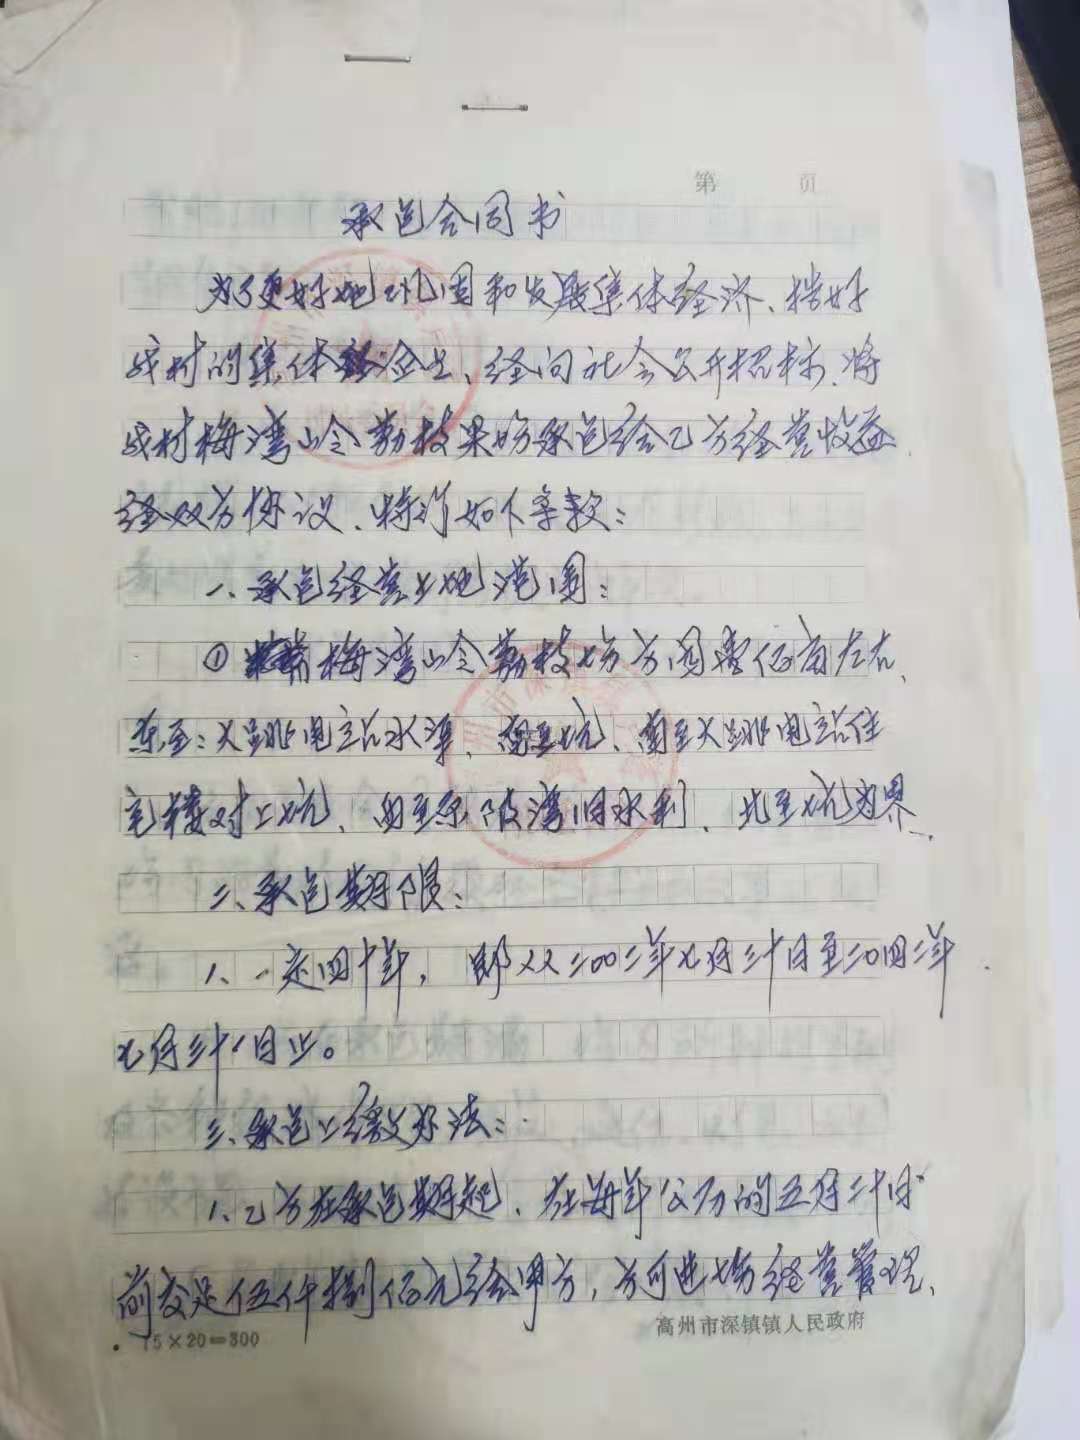 第 页
承包合同书
为了更好地巩固和发展集体经济、搞好
我村的集体企业、经向社会公开招标、将
我村梅湾山令荔枝果场承包给乙方经营收益
经双方协议、特订如下条款：
一、承包经营土地范围：
① 梅湾山令荔枝场方圆壹佰亩左右、
东至：大跳电站水渠、南至大跳电站住
宅楼对上坑、西至陂湾旧水利、北至坑为界、
二、承包期限：
1、一定四十年，即从二00二年七月三十日至二0四二年
七月三十日止。
三、承包上缴交办法：
1、乙方在承包期起、在每年公历的五月二十日
前交足伍仟捌佰元给甲方，方可进场经营管理、
15×20=300
高州市深镇镇人民政府